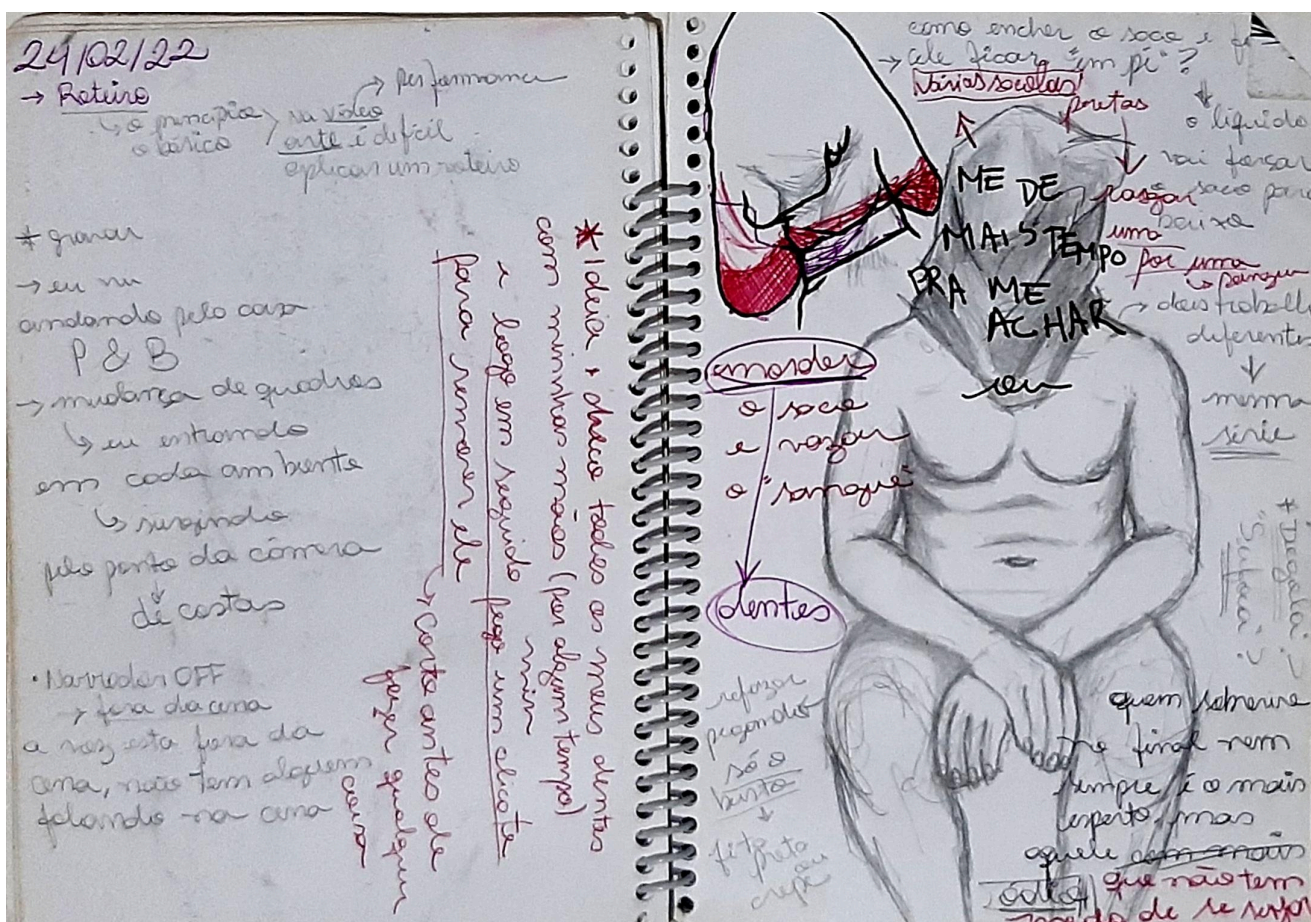 24/02/22
→ Roteiro
→ performance
↳ o princípio
o básico
na vídeo
arte é difícil
aplicar um roteiro
* gravar
→ eu nu
andando pela casa
P & B
→ mudança de quadros
↳ eu entrando
em cada ambiente
↳ surgindo
pelo ponto da câmera
de costas
• Narrador OFF
→ fora da cena
a voz esta fora da
cena, não tem alguem
falando na cena
* Ideia + checo todos os meus dentes
com minhas mãos (por algum tempo)
e logo em seguida pego um alicate
para remover ele
↳ corta antes de
fazer qualquer
coisa
como encher o saco e
→ ele ficar "em pé"?
várias sacolas
pretas
↓
o líquido
vai forçar
o saco para
baixo
rasgar
uma
por uma
ME DE
MAIS TEMPO
PRA ME
ACHAR
ou
→ dois trabalhos
diferentes
↓
mesma
série
morder
o saco
e vazar
o "sangue"
dentes
refazer
pegando
só o
busto
↓
fita
preta
ou
crepe
quem sobrevive
no final nem
sempre é o mais
esperto, mas
aquele com mais
ódio
que não tem
de se